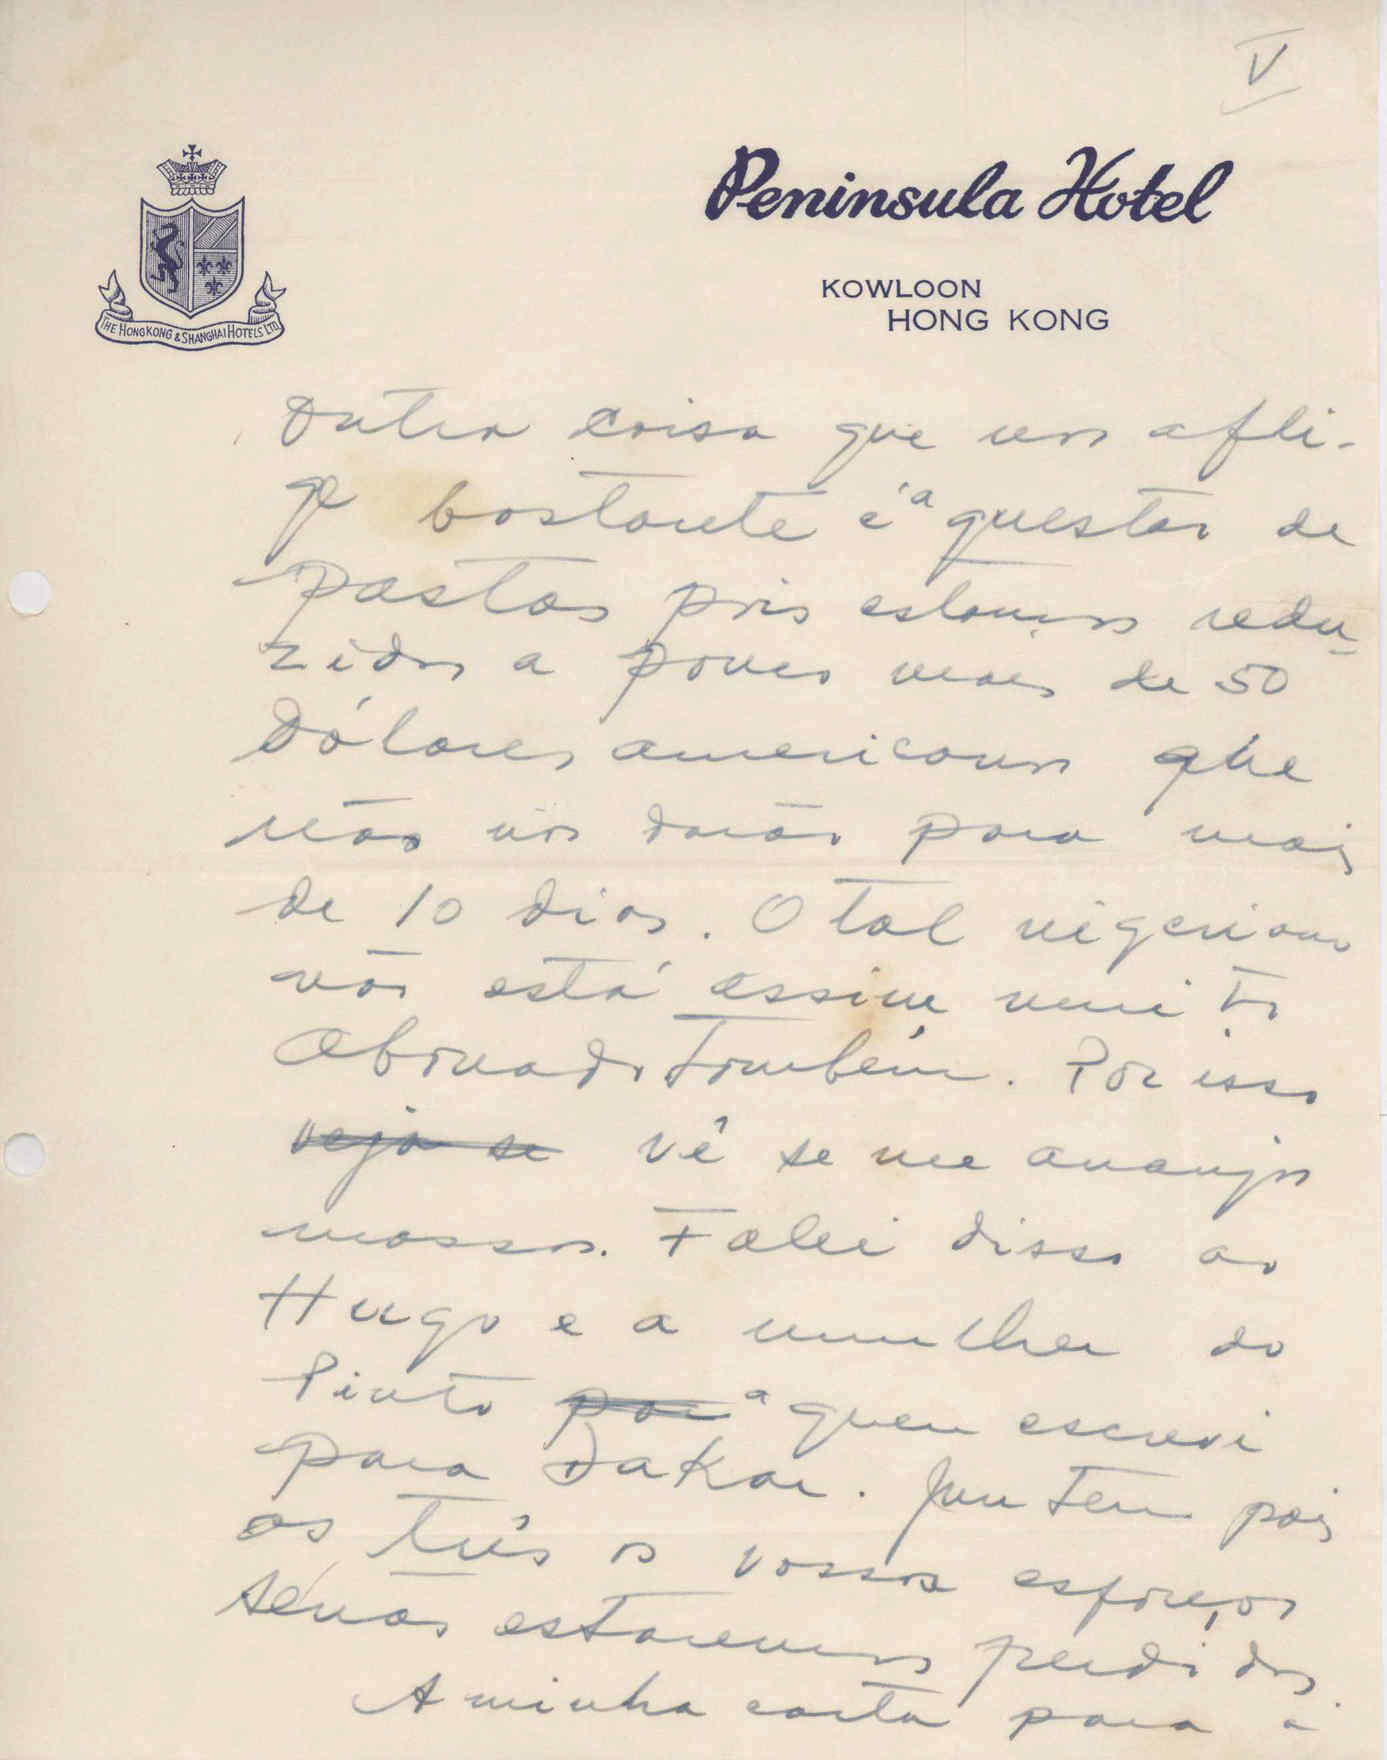 V
Peninsula Hotel
KOWLOON
HONG KONG
THE HONGKONG & SHANGHAI HOTELS LTD
Outra coisa que nos afli-
ge bastante é a questão de
pastas pois estamos redu-
zidos a pouco mais de 50
Dólares americanos que
não nos darão para mais
de 10 dias. O tal nigeriano
não está assim muito
Abonado também. Por isso
veja se vê se me arranjas
massas. Falei disso ao
Hugo e a mulher do
Pinto para a quem escrevi
para Dakar. Juntem pois
os três os vossos esforços
senão estaremos perdidos.
A minha carta para a